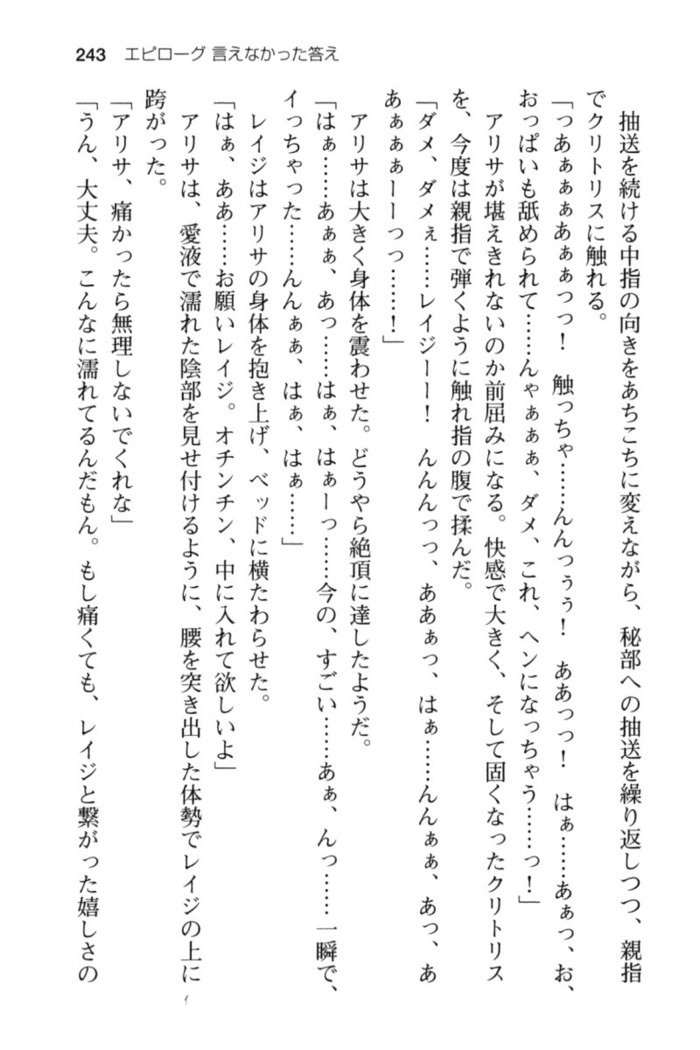 243 エピローグ 言えなかった答え
抽送を続ける中指の向きをあちこちに変えながら、秘部への抽送を繰り返しつつ、親指
でクリトリスに触れる。
「っあぁぁぁあぁぁっっ！　触っちゃ……んんっぅぅ！　ああっっ！　はぁ……あぁっ、お、
おっぱいも舐められて……んゃぁぁぁ、ダメ、これ、ヘンになっちゃう……っ！」
アリサが堪えきれないのか前屈みになる。快感で大きく、そして固くなったクリトリス
を、今度は親指で弾くように触れ指の腹で揉んだ。
「ダメ、ダメぇ……レイジーー！　んんんっっ、ああぁっ、はぁ……んんぁぁ、あっ、あ
あぁぁぁーーっっ……！」
アリサは大きく身体を震わせた。どうやら絶頂に達したようだ。
「はぁ……あぁぁ、あっ……はぁ、はぁーっ……今の、すごい……あぁ、んっ……一瞬で、
イっちゃった……んんぁぁ、はぁ、はぁ……」
レイジはアリサの身体を抱き上げ、ベッドに横たわらせた。
「はぁ、ああ……お願いレイジ。オチンチン、中に入れて欲しいよ」
アリサは、愛液で濡れた陰部を見せ付けるように、腰を突き出した体勢でレイジの上に
跨がった。
「アリサ、痛かったら無理しないでくれな」
「うん、大丈夫。こんなに濡れてるんだもん。もし痛くても、レイジと繋がった嬉しさの